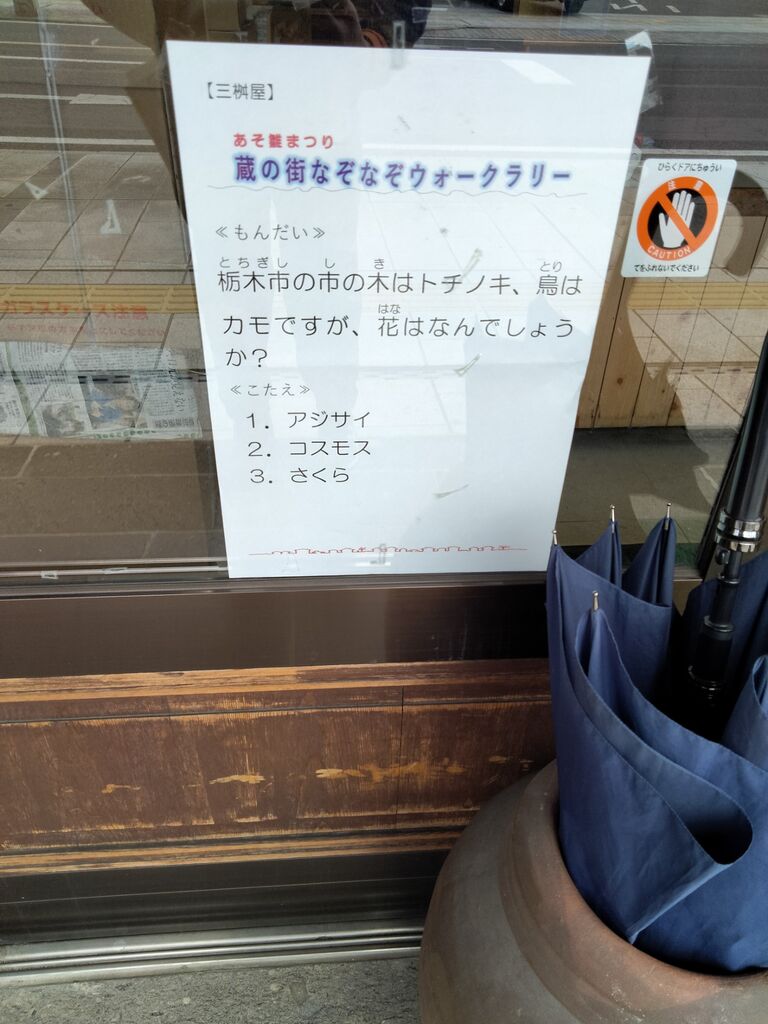 【三桝屋】
あそ雛まつり
蔵の街なぞなぞウォークラリー
≪もんだい≫
とちぎし し き とり
栃木市の市の木はトチノキ、鳥は
はな
カモですが、花はなんでしょう
か？
≪こたえ≫
１．アジサイ
２．コスモス
３．さくら
ひらくドアにちゅうい
注意
CAUTION
てをふれないでください
ガラスケース注意